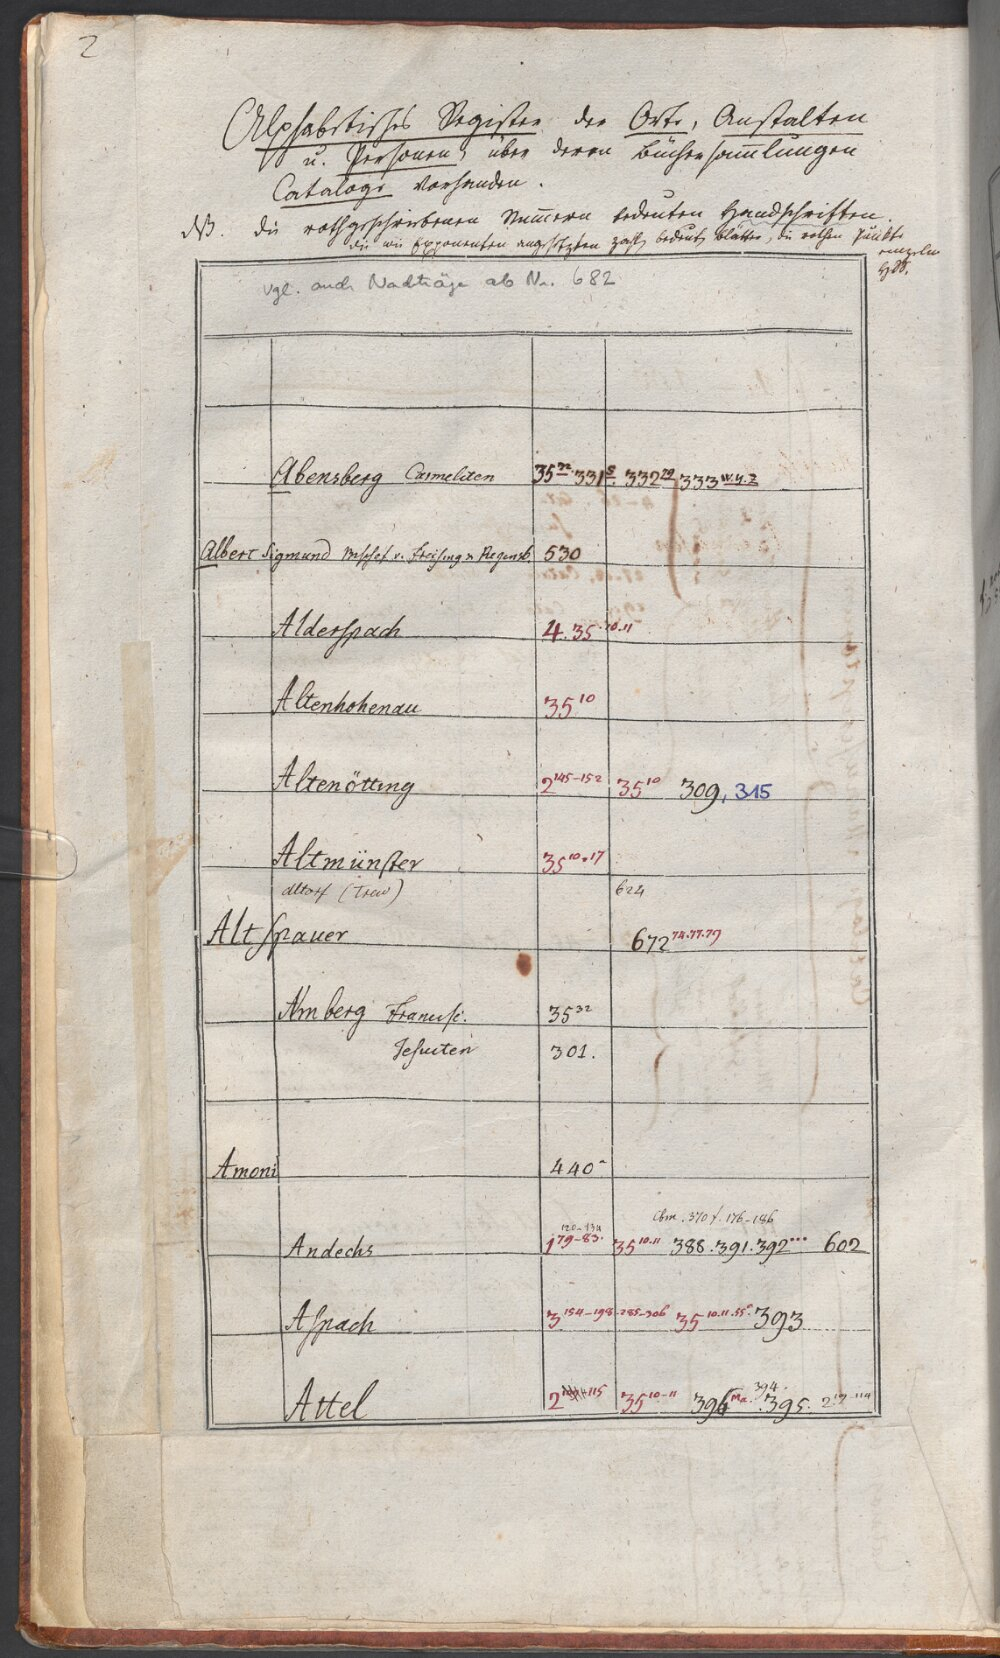 2
Alphabetisches Register der Orte, Anstalten
u. Personen, über deren Büchersam̅lungen
Cataloge vorhanden.
NB. die rothgeschriebenen Num̅ern bedeuten Handschriften.
die wie Exponenten angesetzten Zahl. bedeut. Blätter, die rothen Punkte
einzelne
HSS.
vgl. auch Nachträge ab Nr. 682
Abensberg Carmeliten 35³². 331ˢ. 332²⁹ 333ʷ·ʸ·ᶻ
Albert Sigmund Bischof v. Freising u Regensb. 530
Alderspach 4. 35¹⁰·¹¹
Altenhohenau 35¹⁰
Altenötting 2¹⁴⁵⁻¹⁵² 35¹⁰ 309, 315
Altmünster 35¹⁰·¹⁷
Altorf (Trew) 624
Altspauer 672⁷⁴·⁷⁷·⁷⁹
Amberg Francisc. 35³²
Jesuiten 301.
Amoni 440ᵃ
120-134 Cbm. 370 f. 176-186
Andechs 1⁷⁹⁻⁸³· 35¹⁰·¹¹ 388. 391. 392··· 602
Aspach 3¹⁵⁴⁻¹⁹⁸·²⁸⁵⁻³⁰⁶ 35¹⁰·¹¹·⁵⁵· 393
394.
Attel 2¹¹⁵ 35¹⁰⁻¹¹ 396 ᴹᵃ· 395.